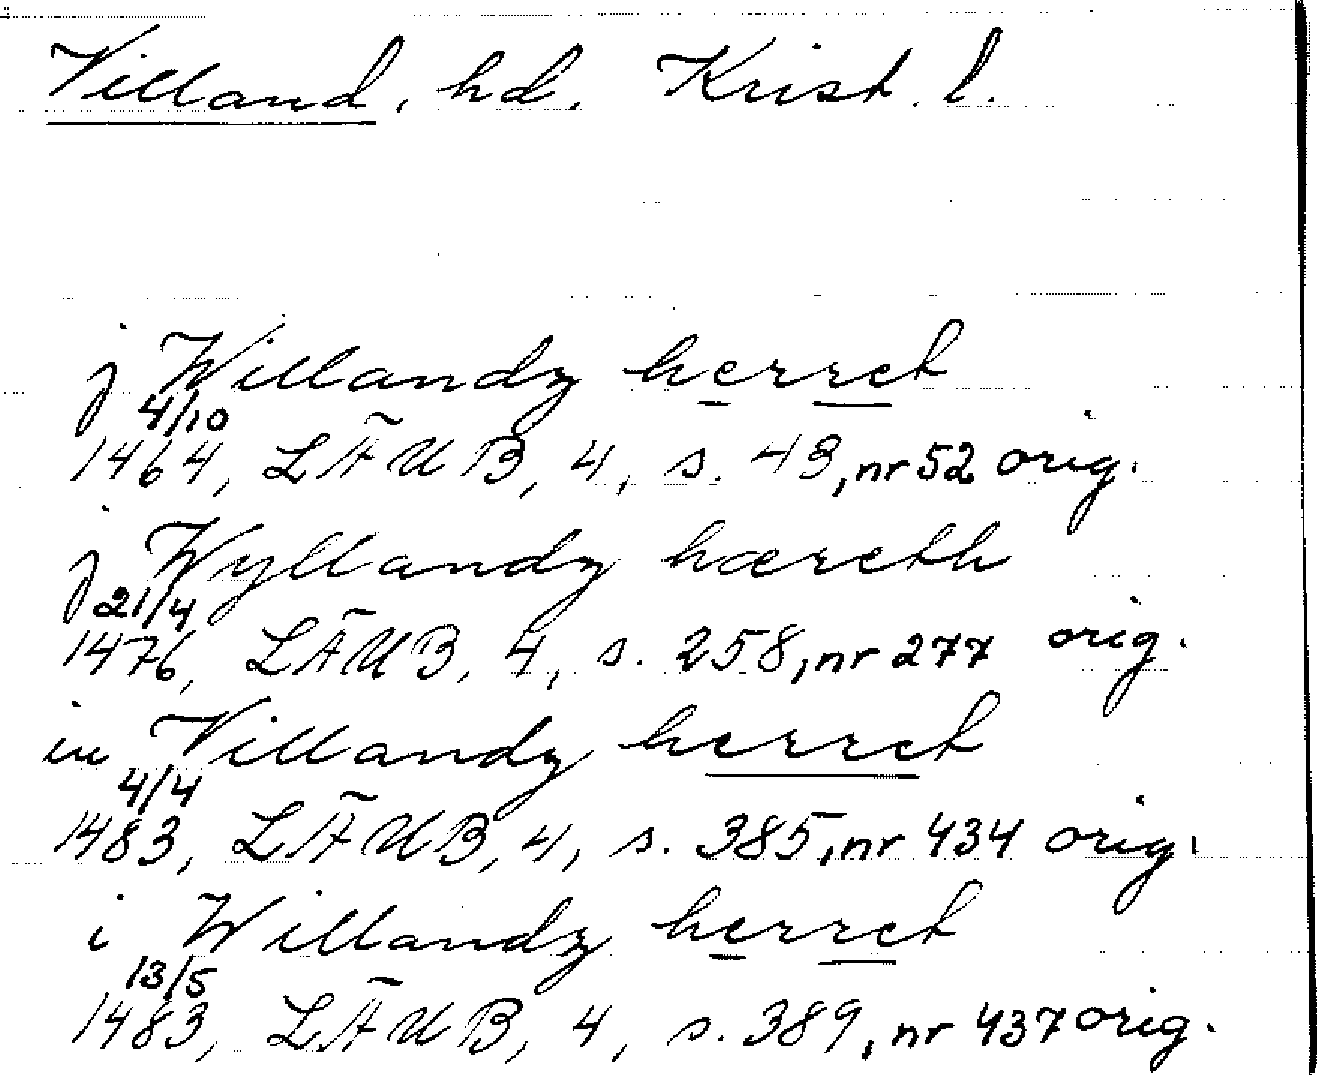 Villand, hd. Krist. l.
j Willandz herret
4/10
1464, LÄUB, 4, s. 43, nr 52 orig.
j Wyllandz hæreth
21/4
1476, LÄUB, 4, s. 258, nr 277 orig.
in Villandz herret
4/4
1483, LÄUB, 4, s. 385, nr 434 orig.
i Willandz herret
13/5
1483, LÄUB, 4, s. 389, nr 437 orig.